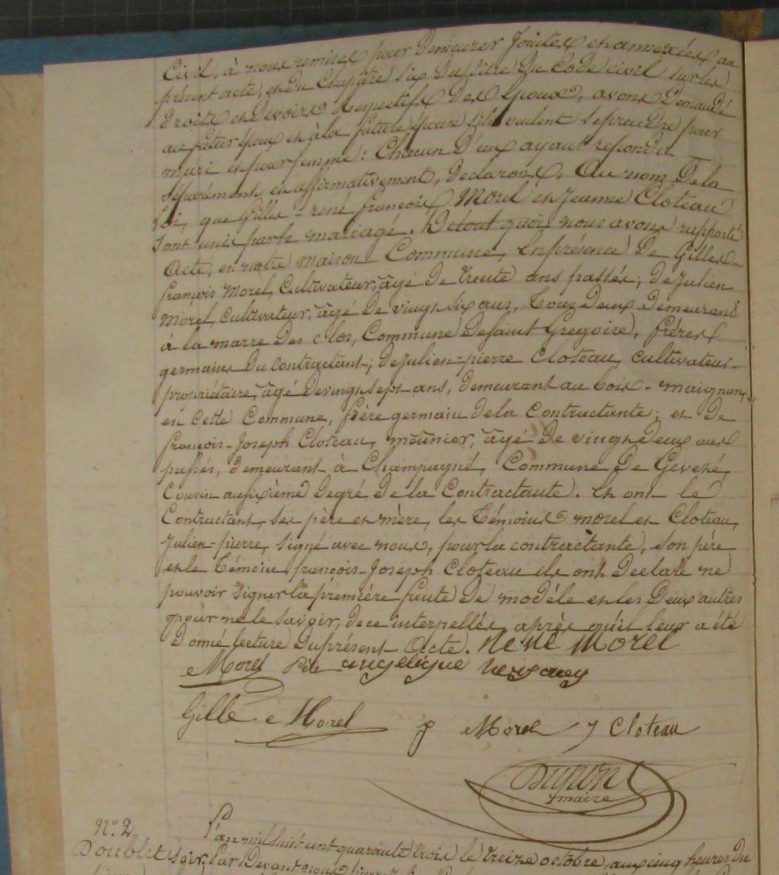 Civil, à nous remises pour demeurer jointes et annexées au
présent acte, et du chapitre six du titre du Code civil sur les
droits et devoirs respectifs des époux, avons demandé
au futur époux et à la future épouse s'ils veulent se prendre pour
mari et pour femme : Chacun d'eux ayant répondu
séparément et affirmativement, déclarons, au nom de la
loi, que Gilles-rené françois Morel et Jeanne Cloteau
sont unis par le mariage. De tout quoi nous avons rapporté
acte, en notre maison Commune, en présence de Gilles-
françois Morel, Cultivateur, âgé de trente ans passés ; de Julien
Morel, Cultivateur, âgé de vingt six ans, tous deux demeurant
à la marre des clos, Commune de Saint Grégoire, frères
germains du contractant ; de Julien-pierre Cloteau, cultivateur-
propriétaire, âgé de vingt sept ans, demeurant au bois-maignan,
en cette Commune, frère germain de la contractante ; et de
françois-Joseph Cloteau, meunier, âgé de vingt deux ans
passés, demeurant à Champagné, Commune de Gevezé,
Cousin au sixième degré de la Contractante. Et ont le
Contractant, ses père et mère, les témoins morel et Cloteau,
Julien-pierre, signé avec nous, pour la contractante, son père
et le témoin françois-Joseph Cloteau ils ont déclaré ne
pouvoir signer la première faute de modèle et les deux autres
pour ne le savoir, de ce interpellés, après qu'il leur a été
donné lecture du présent acte. René Morel
Morel angelique
Gille Morel J Morel J Cloteau
maire
N°. 2. L'an mil huit cent quarante trois le treize octobre, aux cinq heures du
Doublet soir, Par Devant nous